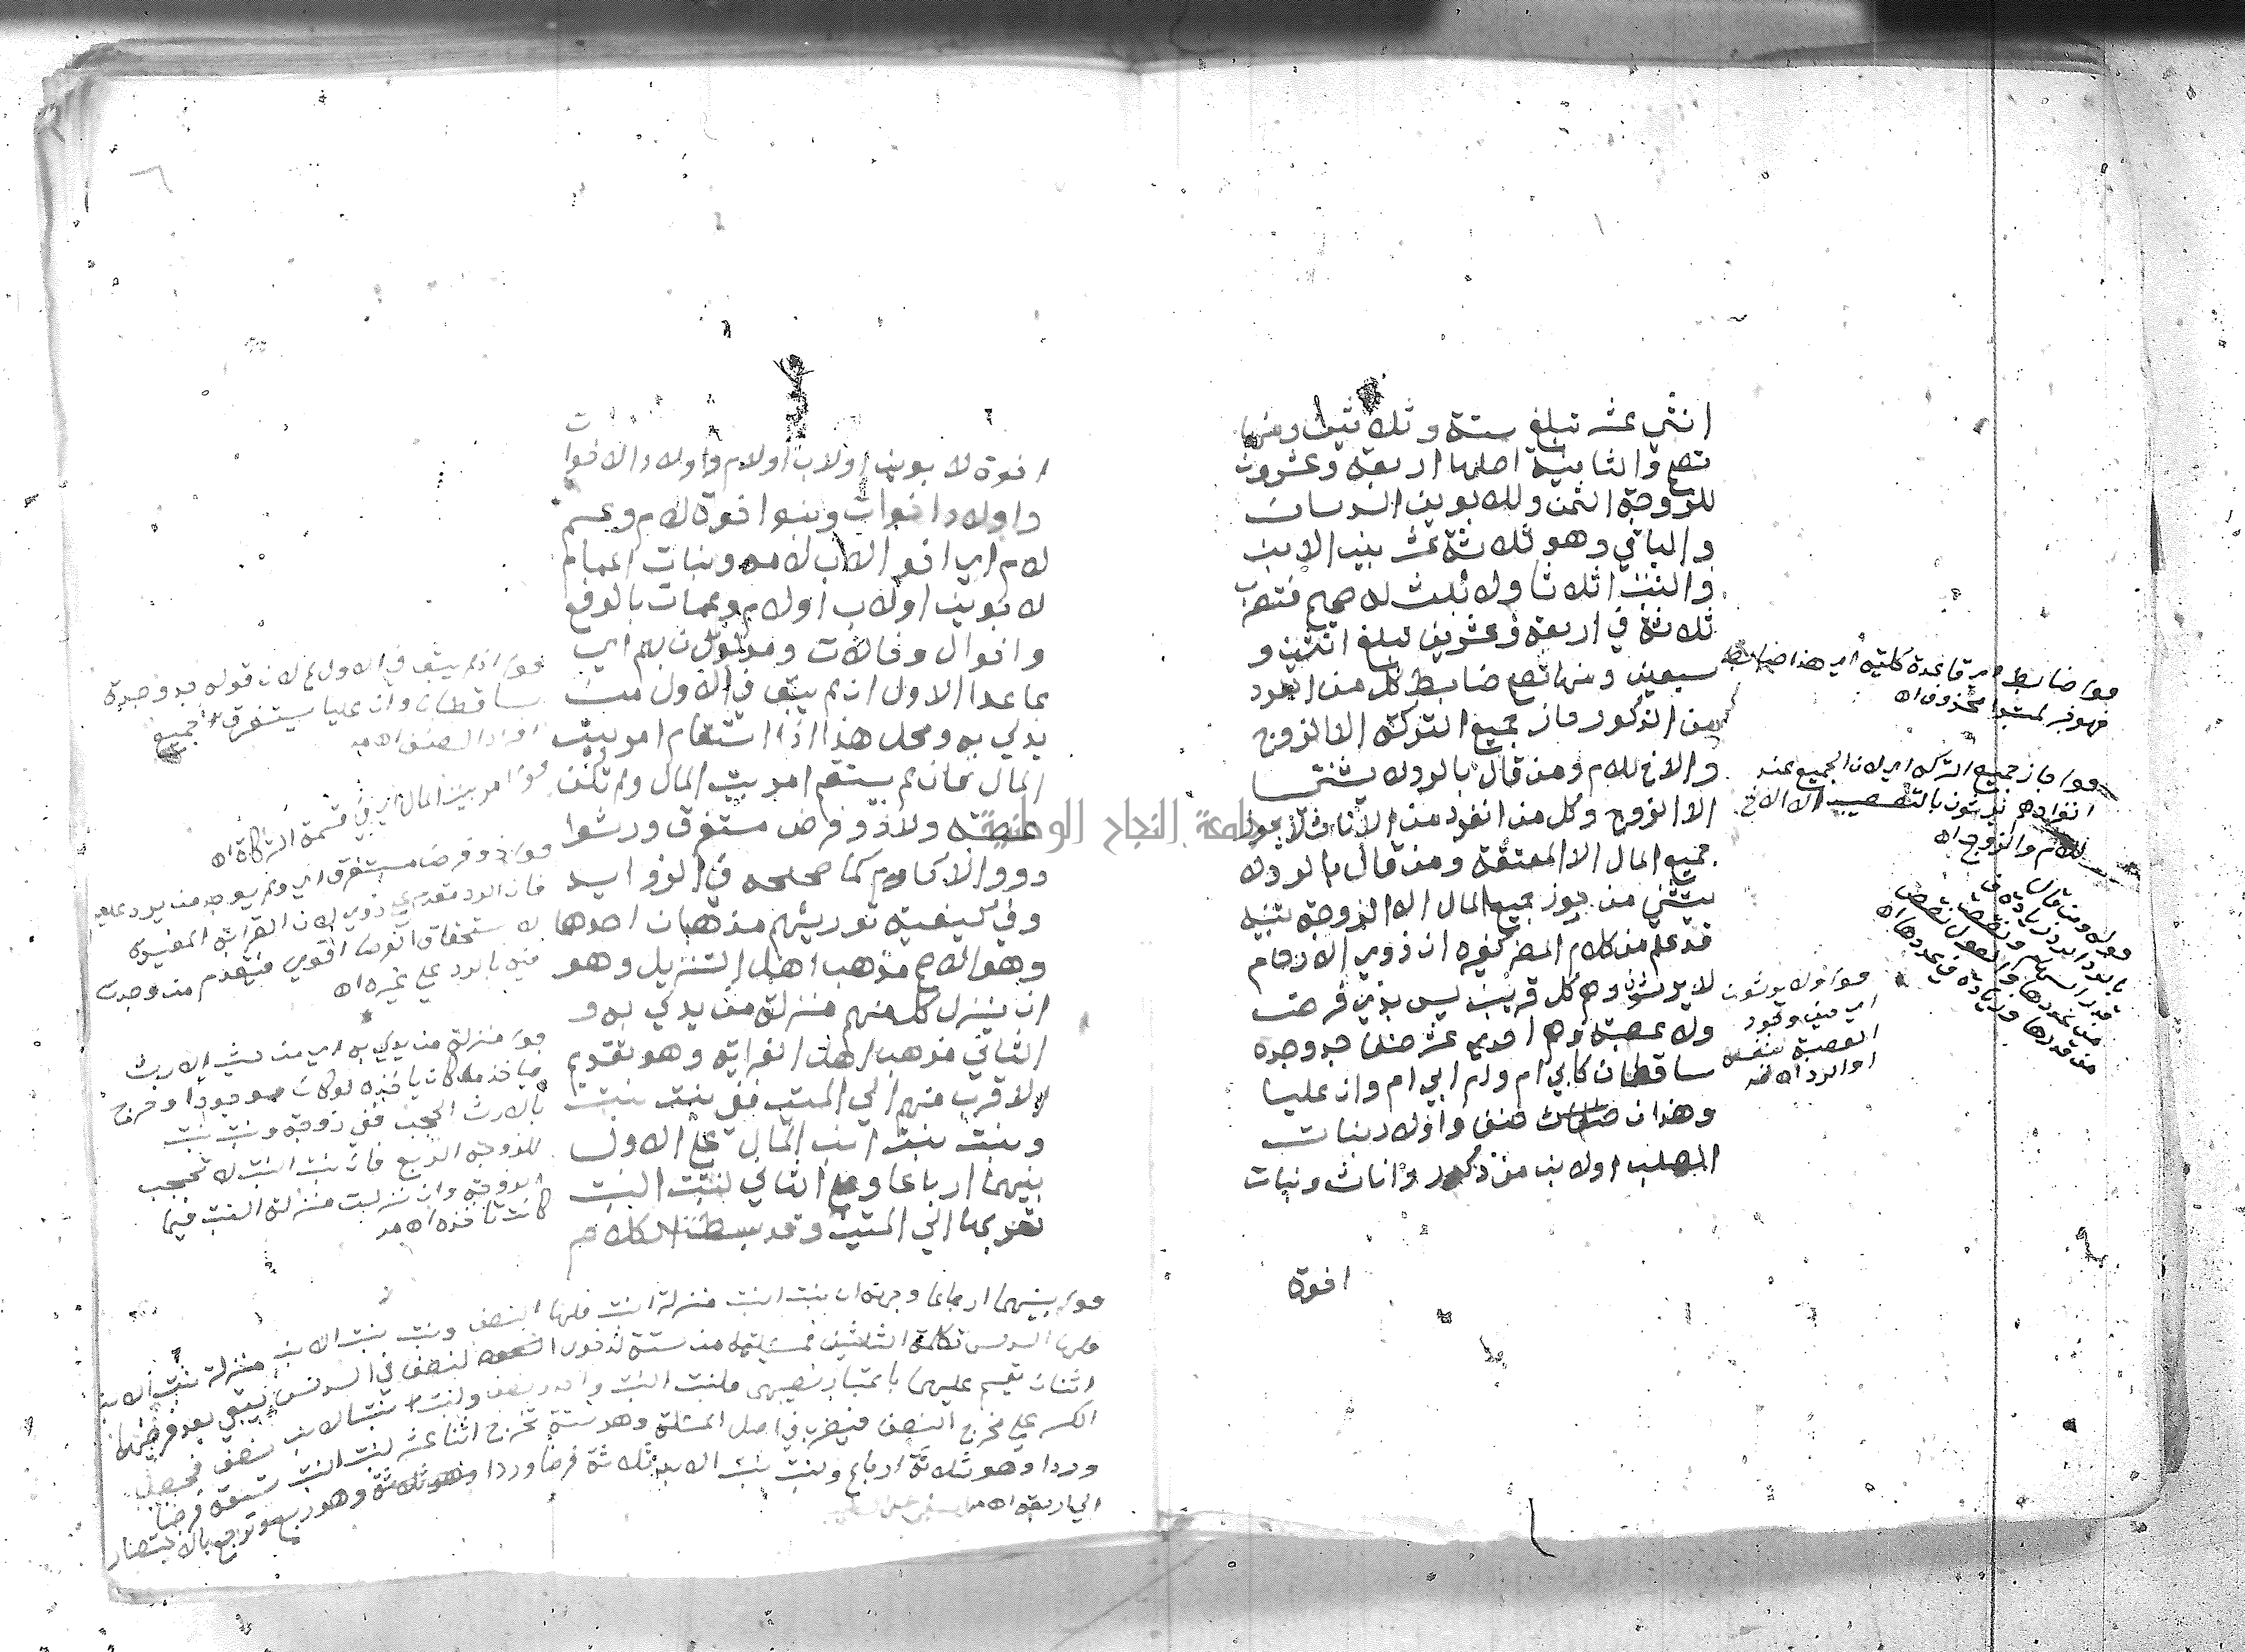 اثني عشر تبلغ ستة وثلاثين ومنها
تصح والثانية اصلها اربعة وعشرون
للزوجة الثمن وللابوين السدسان
والباقي وهو ثلاثة عشر بين الابن
والبنت اثلاثا ولا ثلث له صحيح فتضرب
ثلاثة في اربعة وعشرين تبلغ اثنين و
سبعين ومنها تصح ضابط كل من انفرد
من الذكور حاز جميع التركة الا الزوج
والاخ للام ومن قال بالرد لا يستثني
الا الزوج وكل من انفرد من الاناث لا يحوز
جميع المال الا المعتقة ومن قال بالرد لا
يستثني من حوز جميع المال الا الزوجة تنبيه
قد علم من كلام المص كغيره ان ذوي الارحام
لا يرثون وهم كل قريب ليس بذي فرض
ولا عصبة وهم احد عشر صنفا جد وجدة
ساقطان كابي ام وام ابي ام وان عليا
وهذان صنف واولاد بنات
لصلب او لابن من ذكور واناث وبنات
اخوة
قوله ضابط اي قاعدة كلية اي هذا ضابط
فهو خبر لمبتدا محذوف اه
قوله حاز جميع التركة اي لان الجميع عند
انفرادهم يرثون بالتعصيب الا الاخ
للام والزوج اه
قوله ومن قال
بالرد الرد زيادة في
قدر السهام ونقص
من عددها والعول نقص
من قدرها وزيادة في عددها اه
قوله ولا يرثون
اي مع وجود
العصبة بنفسه
او الرد اه
اخوة لابوين او لاب او لام واولاد الاخوات
واولاد اخوات وبنوا اخوة لام وعم
لام اي اخو الاب لامه وبنات اعمام
لابوين او لاب او لام وعمات بالرفع
واخوال وخالات ومدلون بهم اي
بما عدا الاول اذ لم يبق في الاول من
يدلي به ومحل هذا اذا استقام امر بيت
المال فان لم يستقم امر بيت المال ولم تكن
عصبة ولا ذو فرض مستغرق ورثوا
ذوو الارحام كما صححه في الزوايد
وفي كيفية توريثهم مذهبان احدهما
وهو الاصح مذهب اهل التنزيل وهو
ان ينزل كل منهم منزلة من يدلي به و
الثاني مذهب اهل القرابة وهو تقديم
الاقرب منهم الي الميت ففي بنت بنت
وبنت بنت ابن المال علي الاول
بينهما ارباعا وعلي الثاني لبنت البنت
لقربها الي الميت وقد بسطت الكلام
قوله اذ لم يبق في الاول لان قوله جد وجدة
ساقطان وان عليا يستغرق جميع
افراد الصنف اه
قوله امر بيت المال اي في قسمة التركة اه
قوله ذو فرض مستغرق اي ولم يوجد من يرد عليه
فان الرد مقدم علي ذوي لان القرابة المفيدة
لاستحقاق الفرض اقوي فيقدم من وجدت
فيه بالرد علي غيره اه
قوله منزلة من يدلي به اي من حيث الارث
فياخذ ما كان ياخذه لو كان موجودا وخرج
بالارث الحجب ففي زوجة وبنت بنت
للزوجة الربع فان بنت البنت لا تحجب
الزوجة وان نزلت منزلة البنت فيما
كانت تاخذه اه
قوله بينهما ارباعا وجهه ان بنت البنت منزلة البنت فلها النصف وبنت بنت الابن منزلة بنت الابن
فلها السدس تكملة الثلثين من ستة لدخول النصف في السدس يبقي بعد فرضهما
اثنان يقسم عليهما باعتبار نصيبهما فلبنت البنت واحد ونصف ولبنت بنت الابن نصف فحصل
الكسر علي مخرج النصف فيضرب في اصل المسئلة وهو ستة تخرج اثنا عشر لبنت البنت تسعة فرضا
وردا وهو ثلاثة ارباع ولبنت بنت الابن ثلاثة فرضا وردا وهو ربع وترجع بالاختصار
الي اربعة اه
جامعة النجاح الوطنية